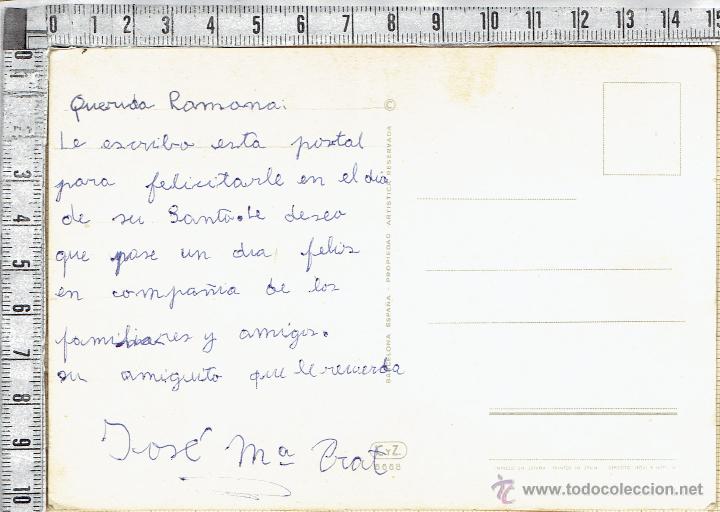 0 1 2 3 4 5 6 7 8 9 10 11 12 13 14 15
0
3
4
5
6
7
8
9
10
Querida Ramona:
Le escribo esta postal
para felicitarle en el dia
de su Santo. Le deseo
que pase un dia felis
en compañia de los
familiares y amigos.
su amiguito que le recuerda
José Mª Prat
BARCELONA ESPAÑA - PROPIEDAD ARTISTICA RESERVADA ©
C y Z
6668
www.todocoleccion.net